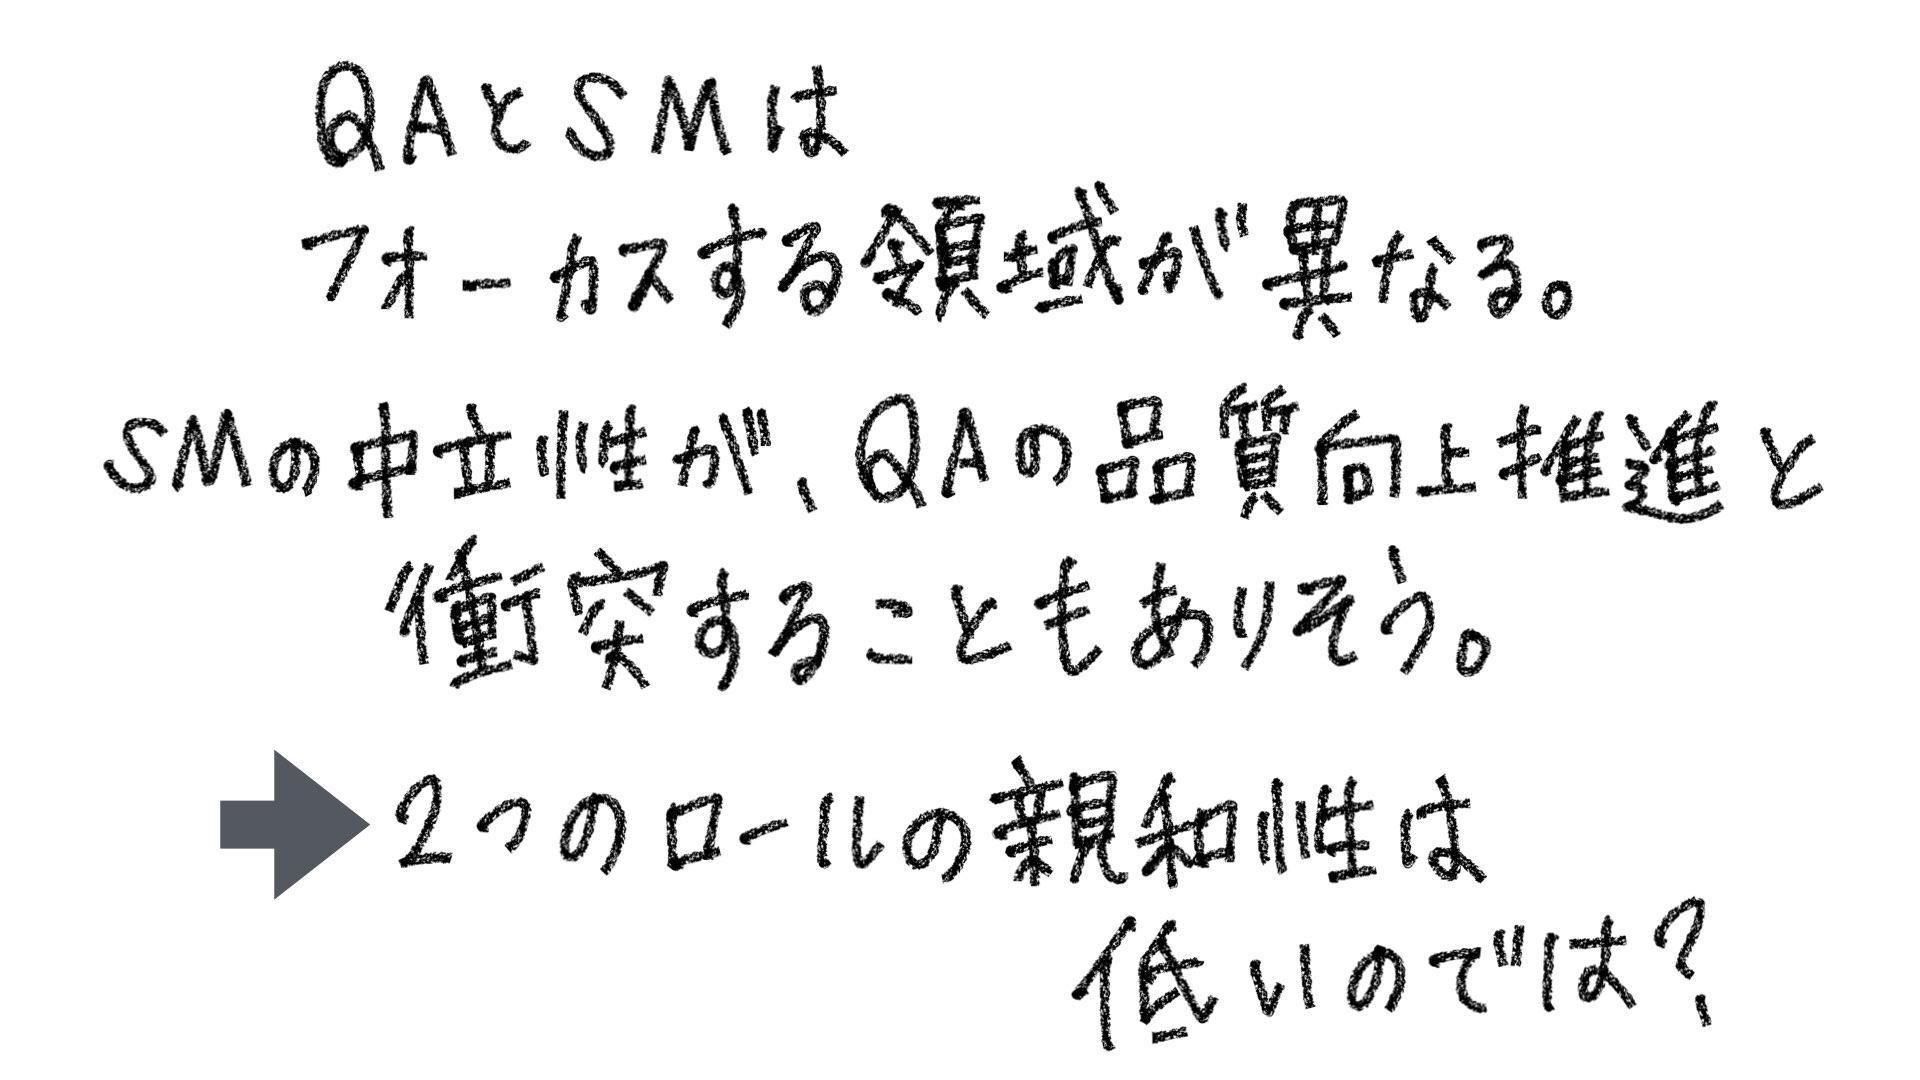 QAとSMは
フォーカスする領域が異なる。
SMの中立性が、QAの品質向上推進と
衝突することもありそう。
2つのロールの親和性は
低いのでは？